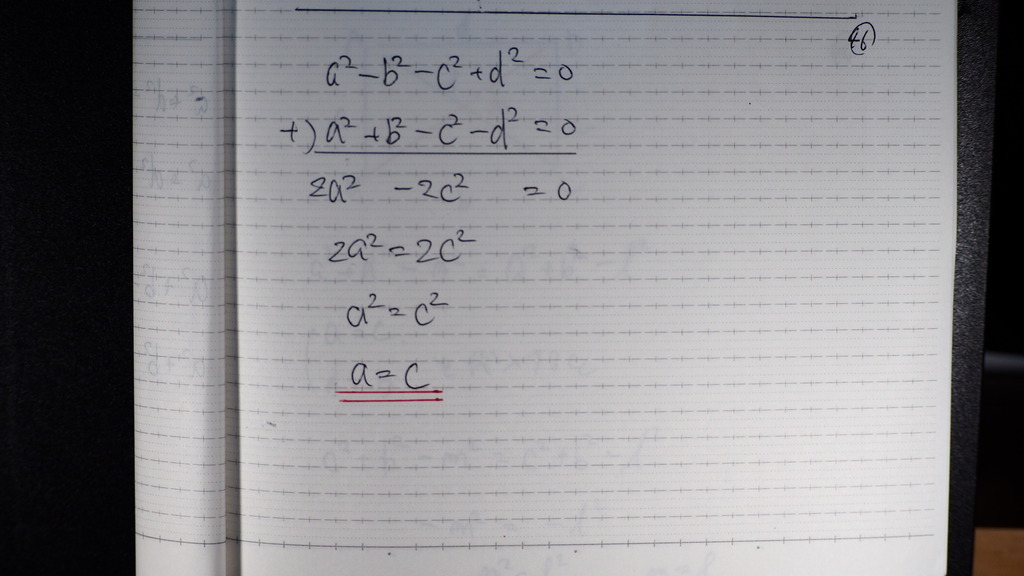 46
a²-b²-c²+d²=0
+) a²+b²-c²-d²=0
2a² -2c² =0
2a²=2c²
a²=c²
a=c